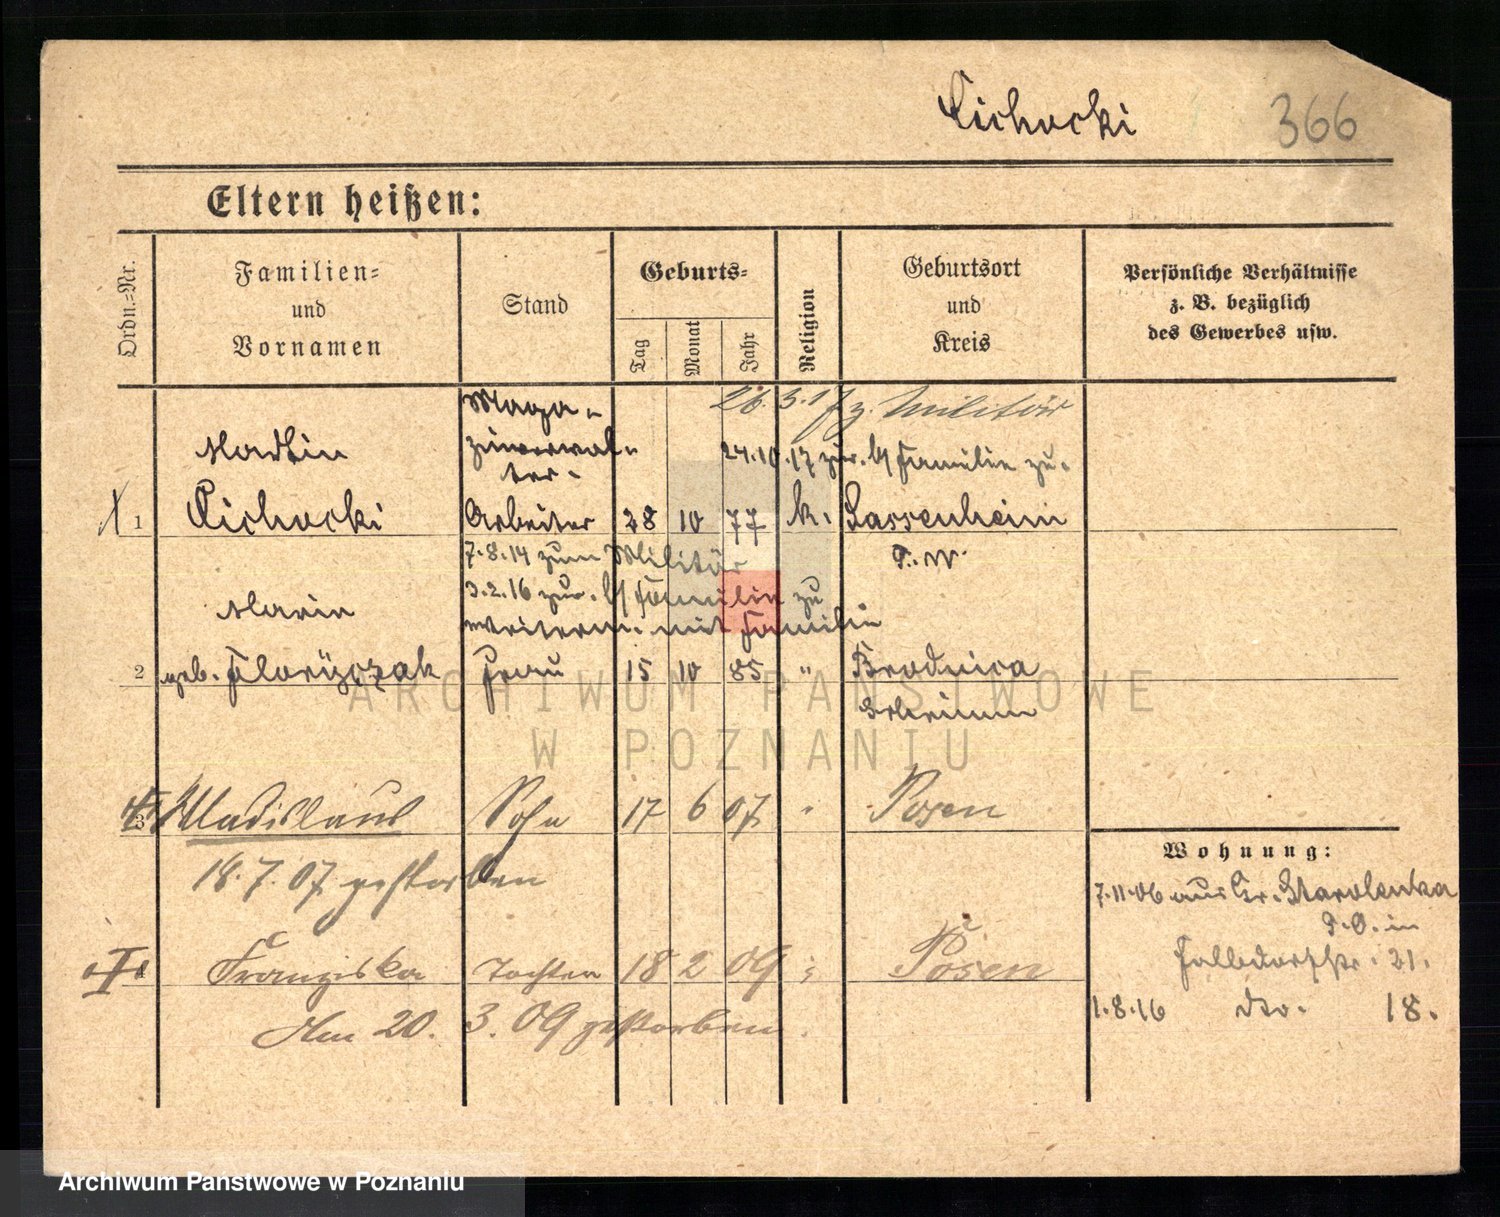 Cichocki 366
Eltern heißen:
Ordn.=Nr.
Familien=
und
Vornamen
Stand
Geburts=
Tag
Monat
Jahr
Religion
Geburtsort
und
Kreis
Persönliche Verhältnisse
z. B. bezüglich
des Gewerbes usw.
Maga-
zinverwal-
ter.
26.3.17 z. Militär
24.10.17 zur. b/ Familie zu.
Martin
1 Cichocki Arbeiter 28 10 77 k. Sassenheim
P. W.
7.8.14 zum Militär
3.2.16 zur. b/ Familie zu
weiterm. mit Familie
Marie
2 geb. Floryczak Frau 15 10 85 " Brodnica
Schrimm
3 Wladislaus Sohn 17 6 07 " Posen
18.7.07 gestorben
4 Franziska Tochter 18 2 09 " Posen
Am 20. 3. 09 gestorben.
Wohnung:
7.11.06 aus Gr. Starolenka
P.O. in
21.
1.8.16 dto. 18.
ARCHIWUM PAŃSTWOWE
W POZNANIU
Archiwum Państwowe w Poznaniu